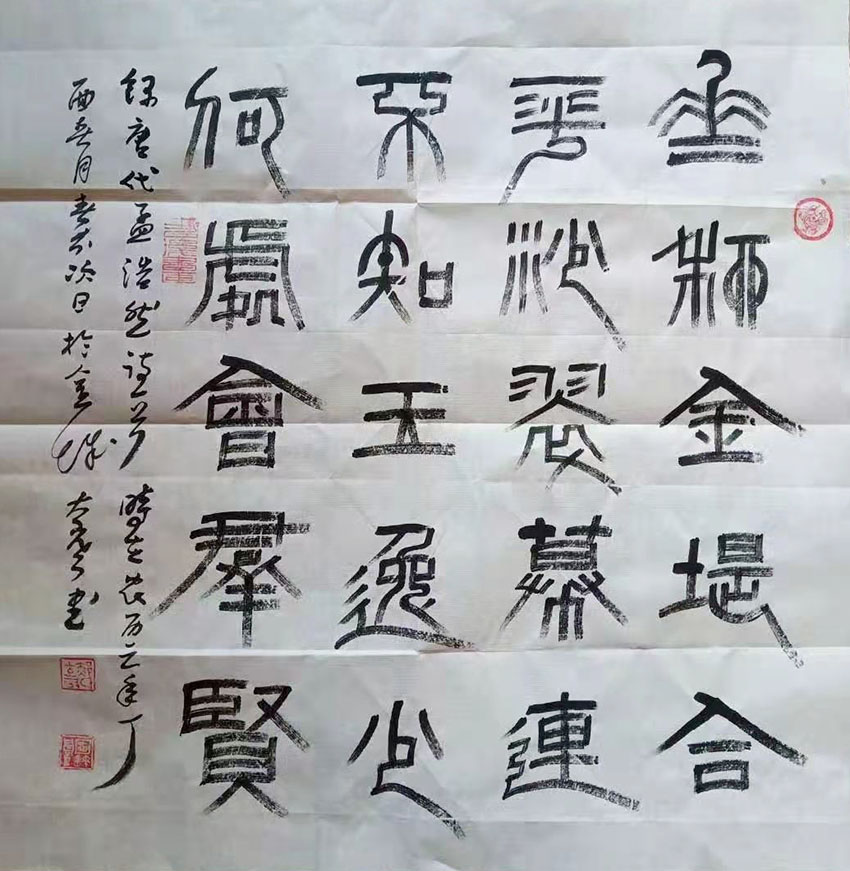 垂柳金堤合
平沙翠幕連
不知王逸少
何處會羣賢
錄唐代孟浩然詩 時在农历之年丁
酉春月春分次日於金城 书